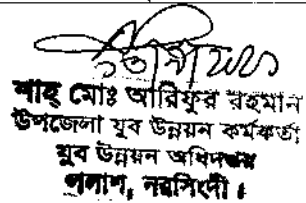 শাহ্ মোঃ আরিফুর রহমান
উপজেলা যুব উন্নয়ন কর্মকর্তা
যুব উন্নয়ন অধিদপ্তর
পলাশ, নরসিংদী।